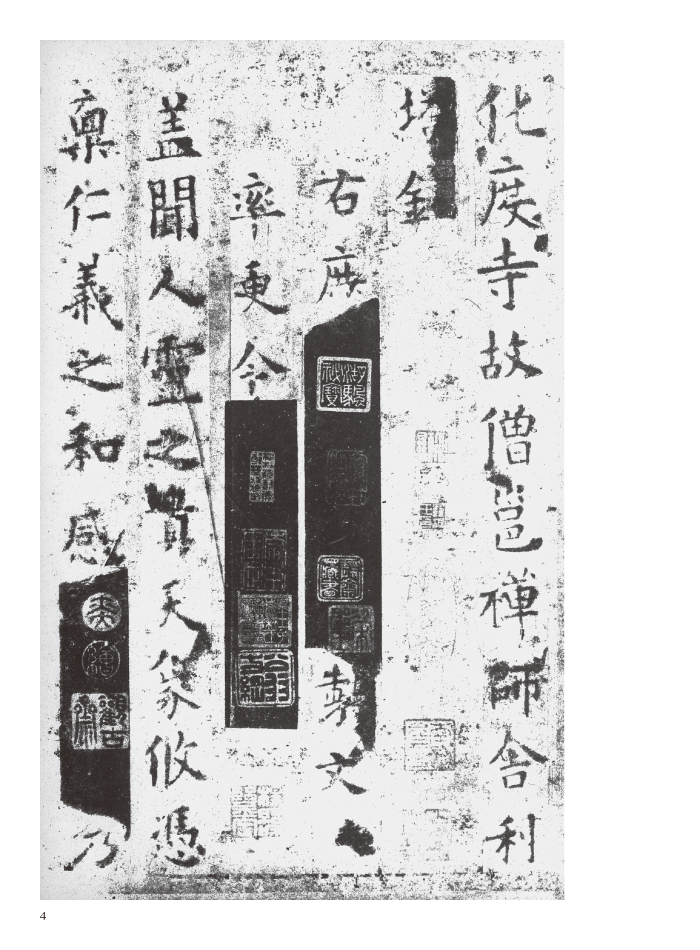 化度寺故僧邕禪師舍利
塔銘
右庶
製文
率更令
蓋聞人靈之貴天象攸憑
稟仁義之和感
乃
4